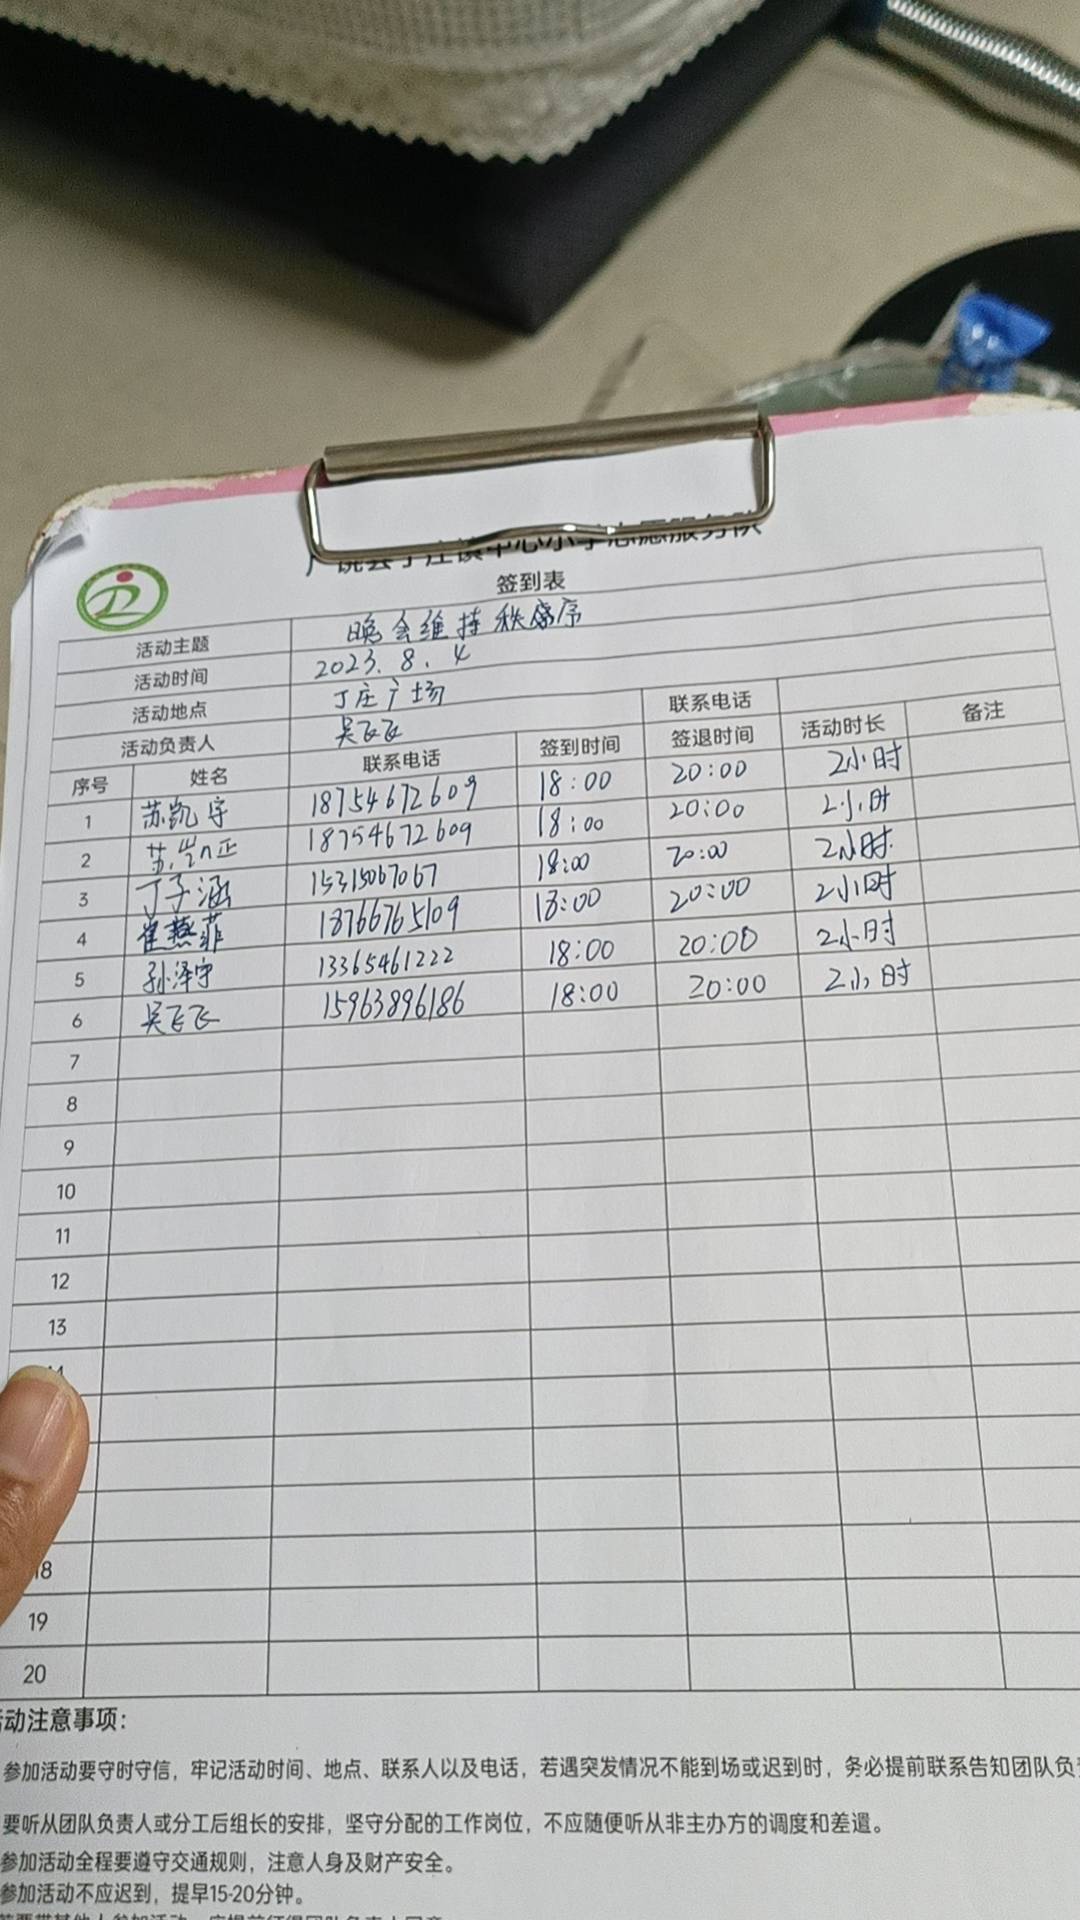 广饶县丁庄镇中心小学志愿服务队
签到表
活动主题 晚会维持秩序
活动时间 2023.8.4
活动地点 丁庄广场
活动负责人 吴飞飞 联系电话
序号 姓名 联系电话 签到时间 签退时间 活动时长 备注
1 苏凯宇 18754672609 18:00 20:00 2小时
2 苏 18754672609 18:00 20:00 2小时
3 丁子涵 15315067067 18:00 20:00 2小时
4 崔燕菲 18766765109 18:00 20:00 2小时
5 孙泽宇 13365461222 18:00 20:00 2小时
6 吴飞飞 15963896186 18:00 20:00 2小时
7
8
9
10
11
12
13
18
19
20
活动注意事项：
参加活动要守时守信，牢记活动时间、地点、联系人以及电话，若遇突发情况不能到场或迟到时，务必提前联系告知团队负
要听从团队负责人或分工后组长的安排，坚守分配的工作岗位，不应随便听从非主办方的调度和差遣。
参加活动全程要遵守交通规则，注意人身及财产安全。
参加活动不应迟到，提早15-20分钟。